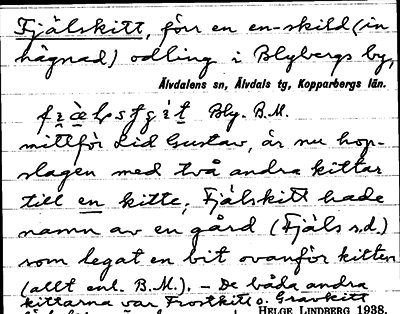 Fjälskitt, förr en en-skild (in
hägnad) odling i Blybergs by,
Älvdalens sn, Älvdals tg, Kopparbergs län.
Bly. B.M.
mittför Lid Gustav, är nu hop-
slagen med två andra kittar
till en kitte; Fjälskitt hade
namn av en gård (Fjäls s.d.)
som legat en bit ovanför kitten
(allt enl. B.M.). – De båda andra
kittarna var Frostkitt o. Gravkitt
HELGE LINDBERG 1938.